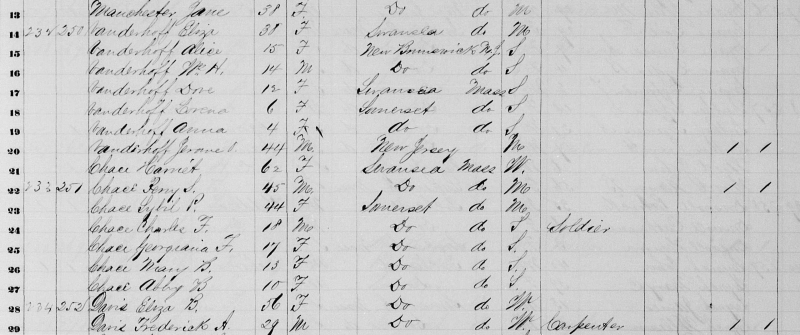 13 Manchester Jane 38 F Do do M
14 234 250 Vanderhoff Eliza 38 F Swansea do M
15 Vanderhoff Alice 15 F New Brunswick N.J. S
16 Vanderhoff Wm H. 14 M Do do S
17 Vanderhoff Dore 12 F Swansea Mass S
18 Vanderhoff 6 F Somerset do S
19 Vanderhoff Anna 4 F do do S
20 Vanderhoff Jerome 44 M New Jersey M 1 1
21 Chace Harriet 62 F Swansea Mass W.
22 251 Chace Perry S. 45 M Do do M 1 1
23 Chace Sybil P. 44 F Somerset do M
24 Chace Charles F. 18 M Do do S Soldier
25 Chace Georgiana F. 17 F Do do S
26 Chace Mary B. 13 F Do do S
27 Chace Abby B 10 F Do do S
28 234 252 Davis Eliza B. 56 F Do do W
29 Davis Frederick A 29 M Do do W Carpenter 1 1